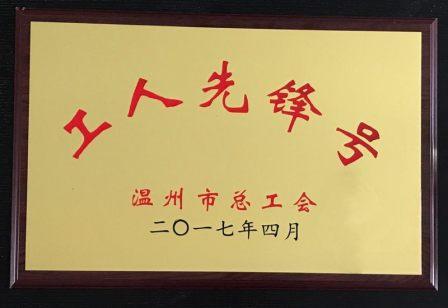 工人先锋号
温州市总工会
二〇一七年四月